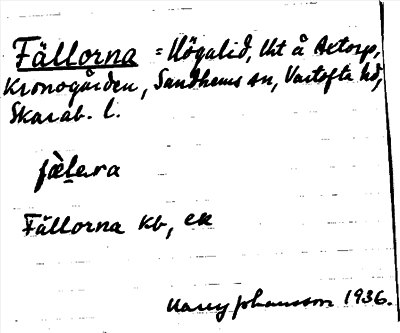 Fällorna = Högalid, lht å Axtorp,
Kronogården, Sandhems sn, Vartofta hd,
Skarab. l.
fæ̀lᴀra
Fällorna kb, ek
Harry Johansson 1936.